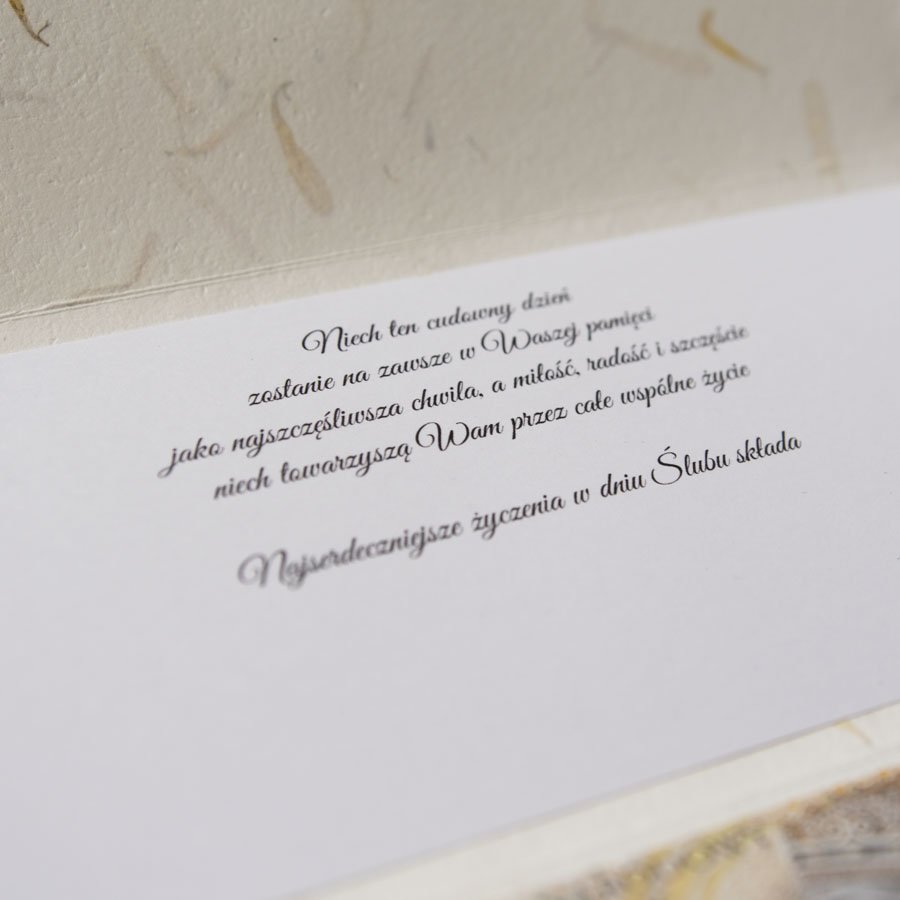 Niech ten cudowny dzień
zostanie na zawsze w Waszej pamięci
jako najszczęśliwsza chwila, a miłość, radość i szczęście
niech towarzyszą Wam przez całe wspólne życie
Najserdeczniejsze życzenia w dniu Ślubu składa